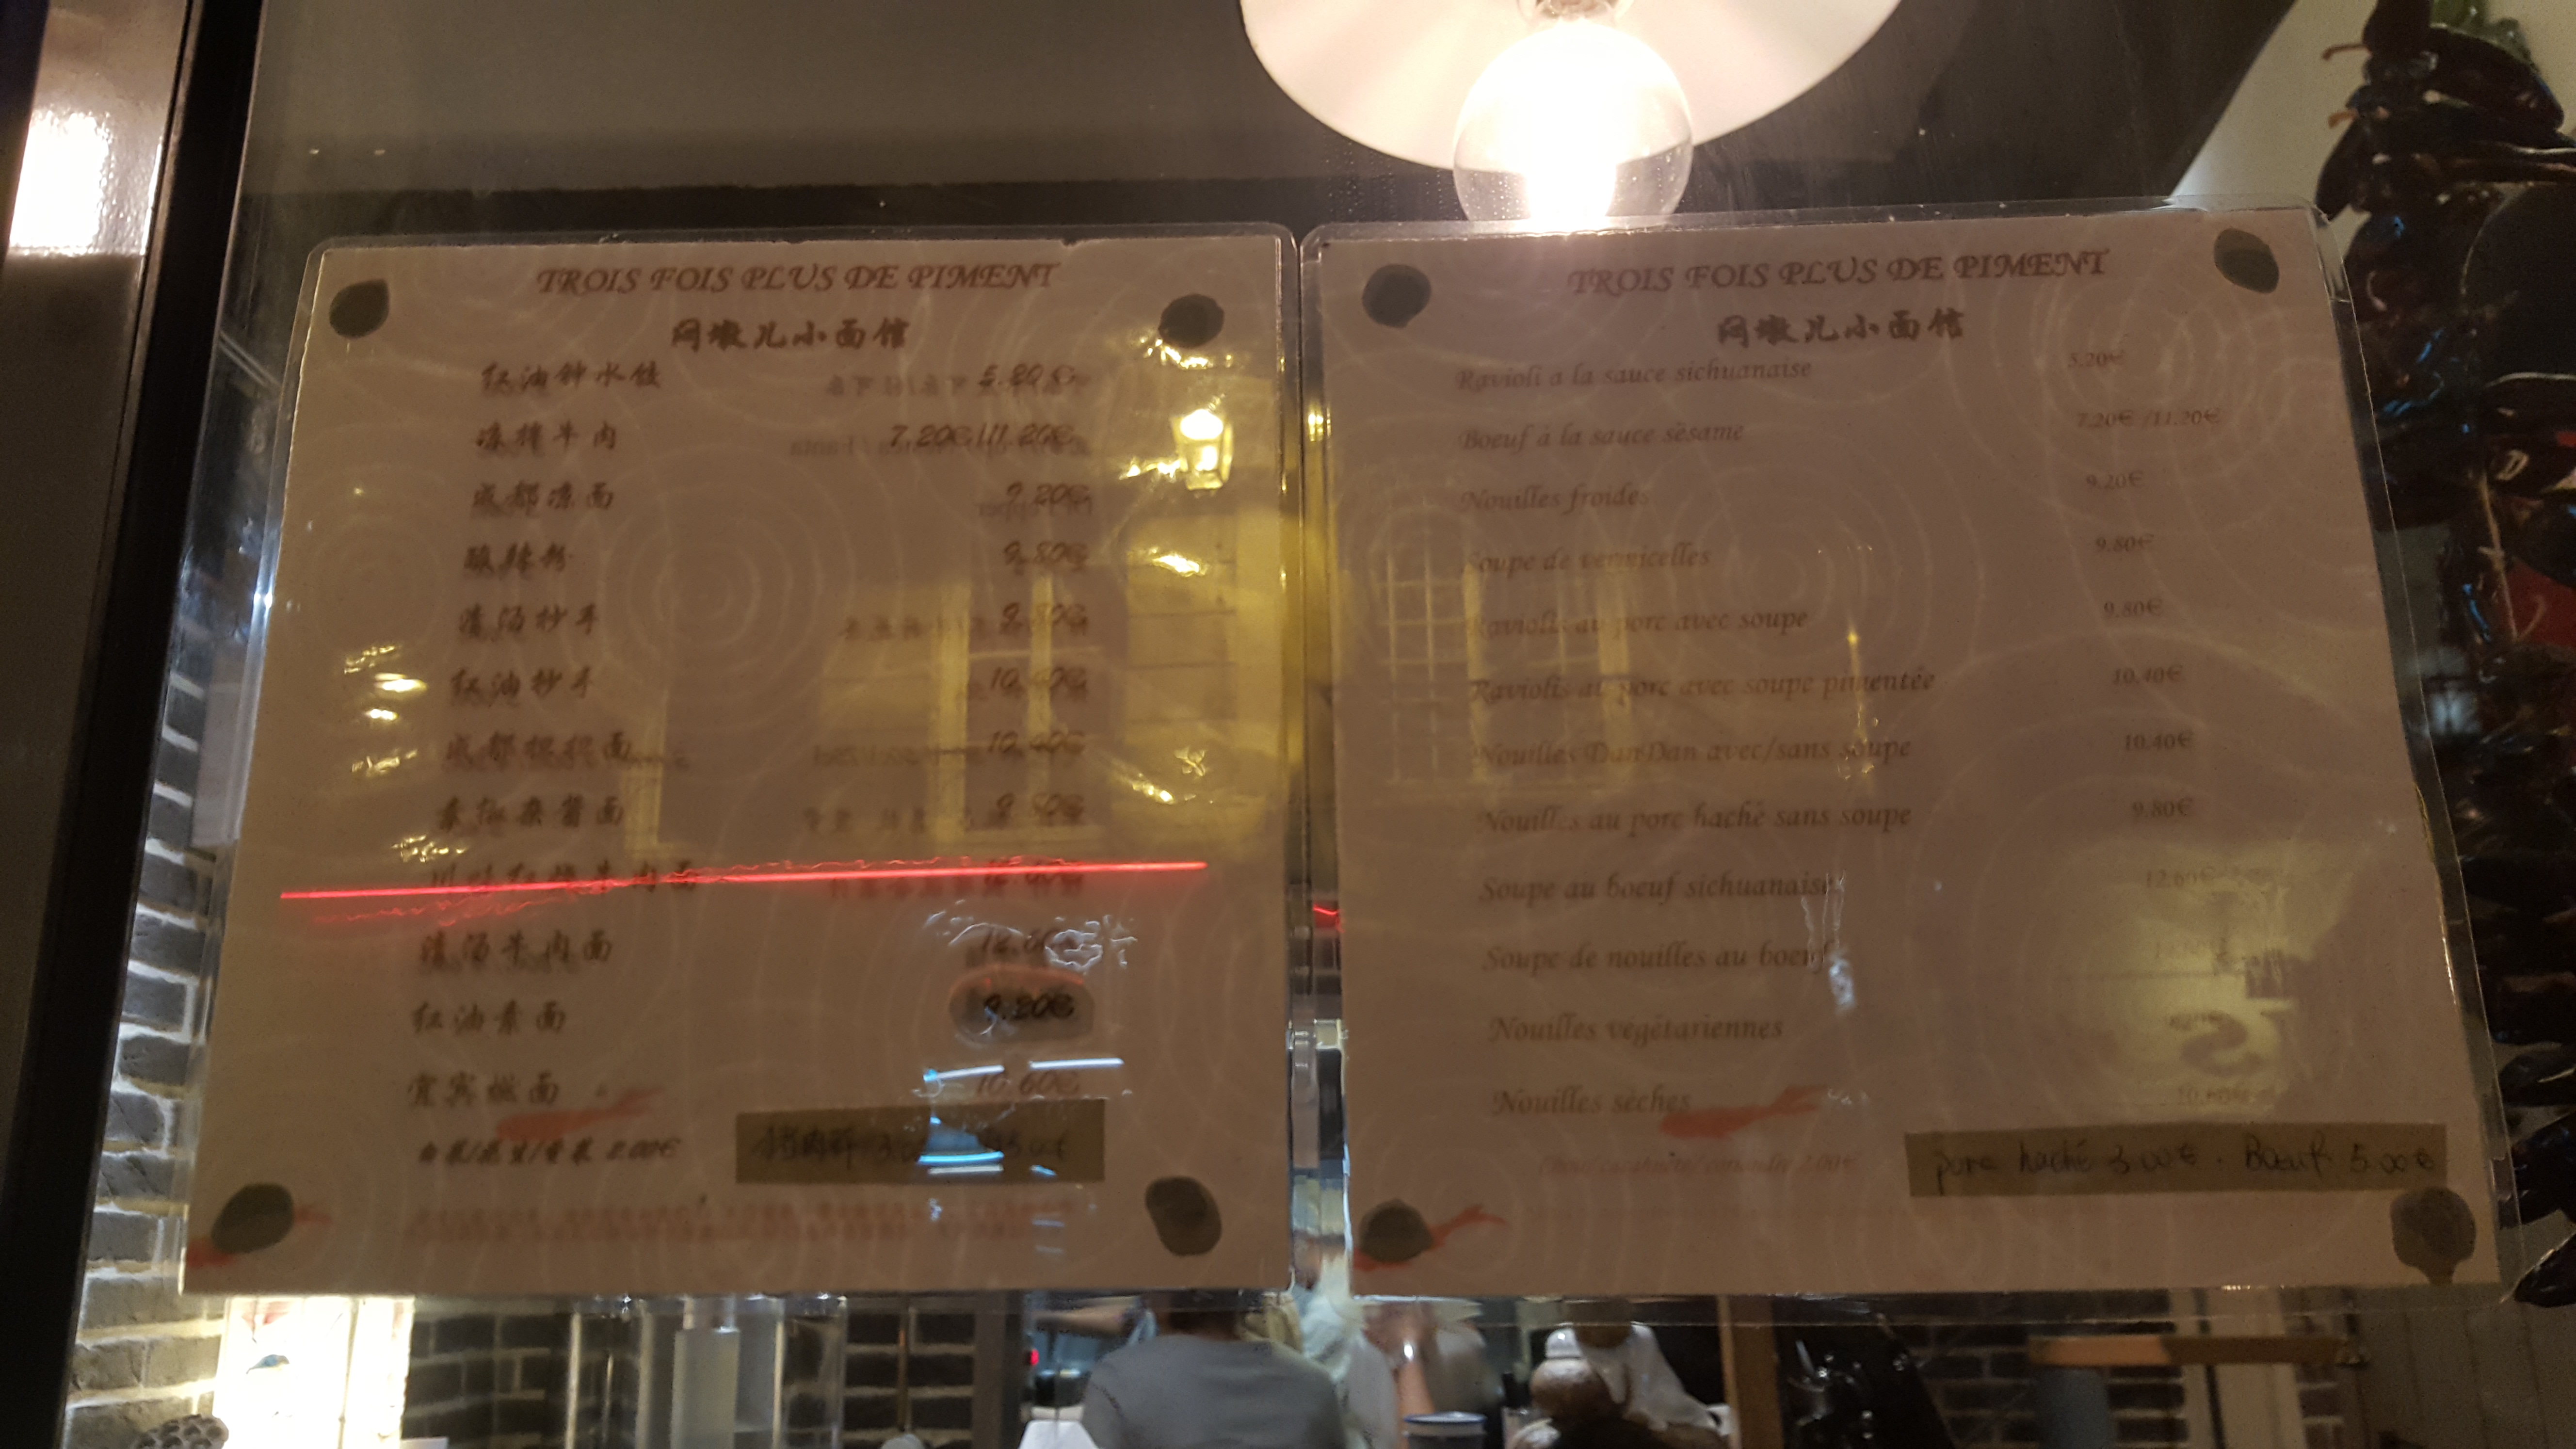 TROIS FOIS PLUS DE PIMENT
小面馆
红油钟水饺 5.20€
牛肉 7.20€/11.20€
成都凉面 9.20€
酸辣粉 9.80€
清汤抄手 9.80€
红油抄手 10.40€
成都 面 10.40€
酱面 9.80€
牛肉面
清汤牛肉面
红油素面 9.20€
宜宾燃面 10.60€
2.00€
TROIS FOIS PLUS DE PIMENT
小面馆
Ravioli a la sauce sichuanaise 5.20€
Boeuf à la sauce sésame 7.20€ /11.20€
Nouilles froides 9.20€
Soupe de vermicelles 9.80€
Raviolis au porc avec soupe 9.80€
Raviolis au porc avec soupe pimentée 10.40€
Nouilles DanDan avec/sans soupe 10.40€
Nouilles au porc haché sans soupe 9.80€
Soupe au boeuf sichuanaise 12.60€
Soupe de nouilles au boeuf
Nouilles végétariennes
Nouilles sèches 10.60€
2.00€
porc haché 3.00€ . Boeuf 5.00€